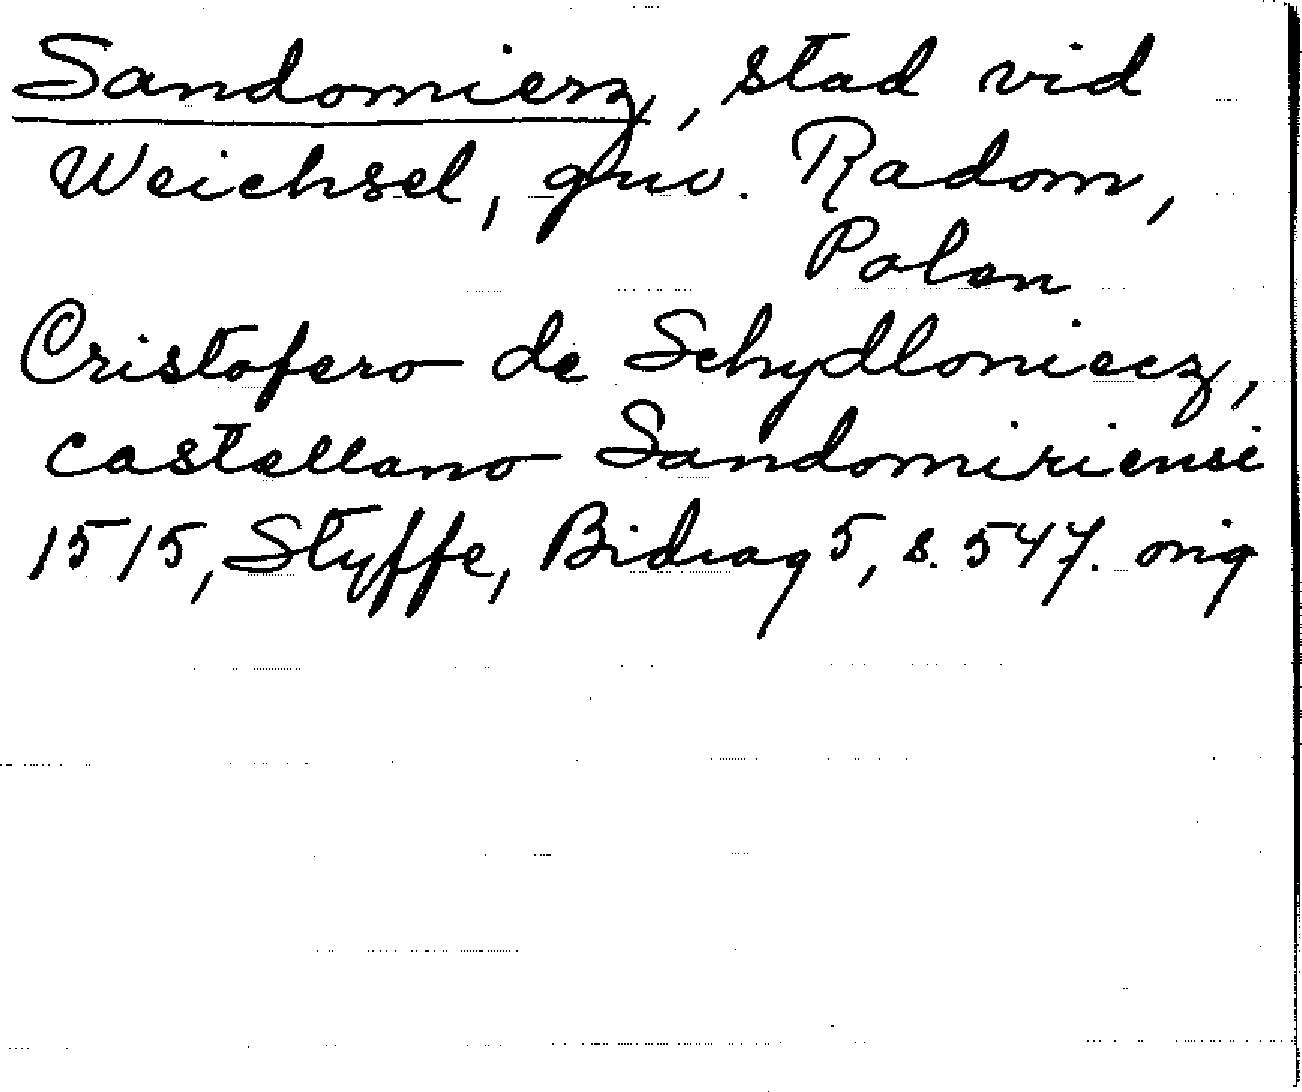 Sandomierz, stad vid
Weichsel, guv. Radom,
Polen
Cristofero de Schydloniecz,
castellano Sandomiriensi
1515, Styffe, Bidrag 5, s. 547. orig